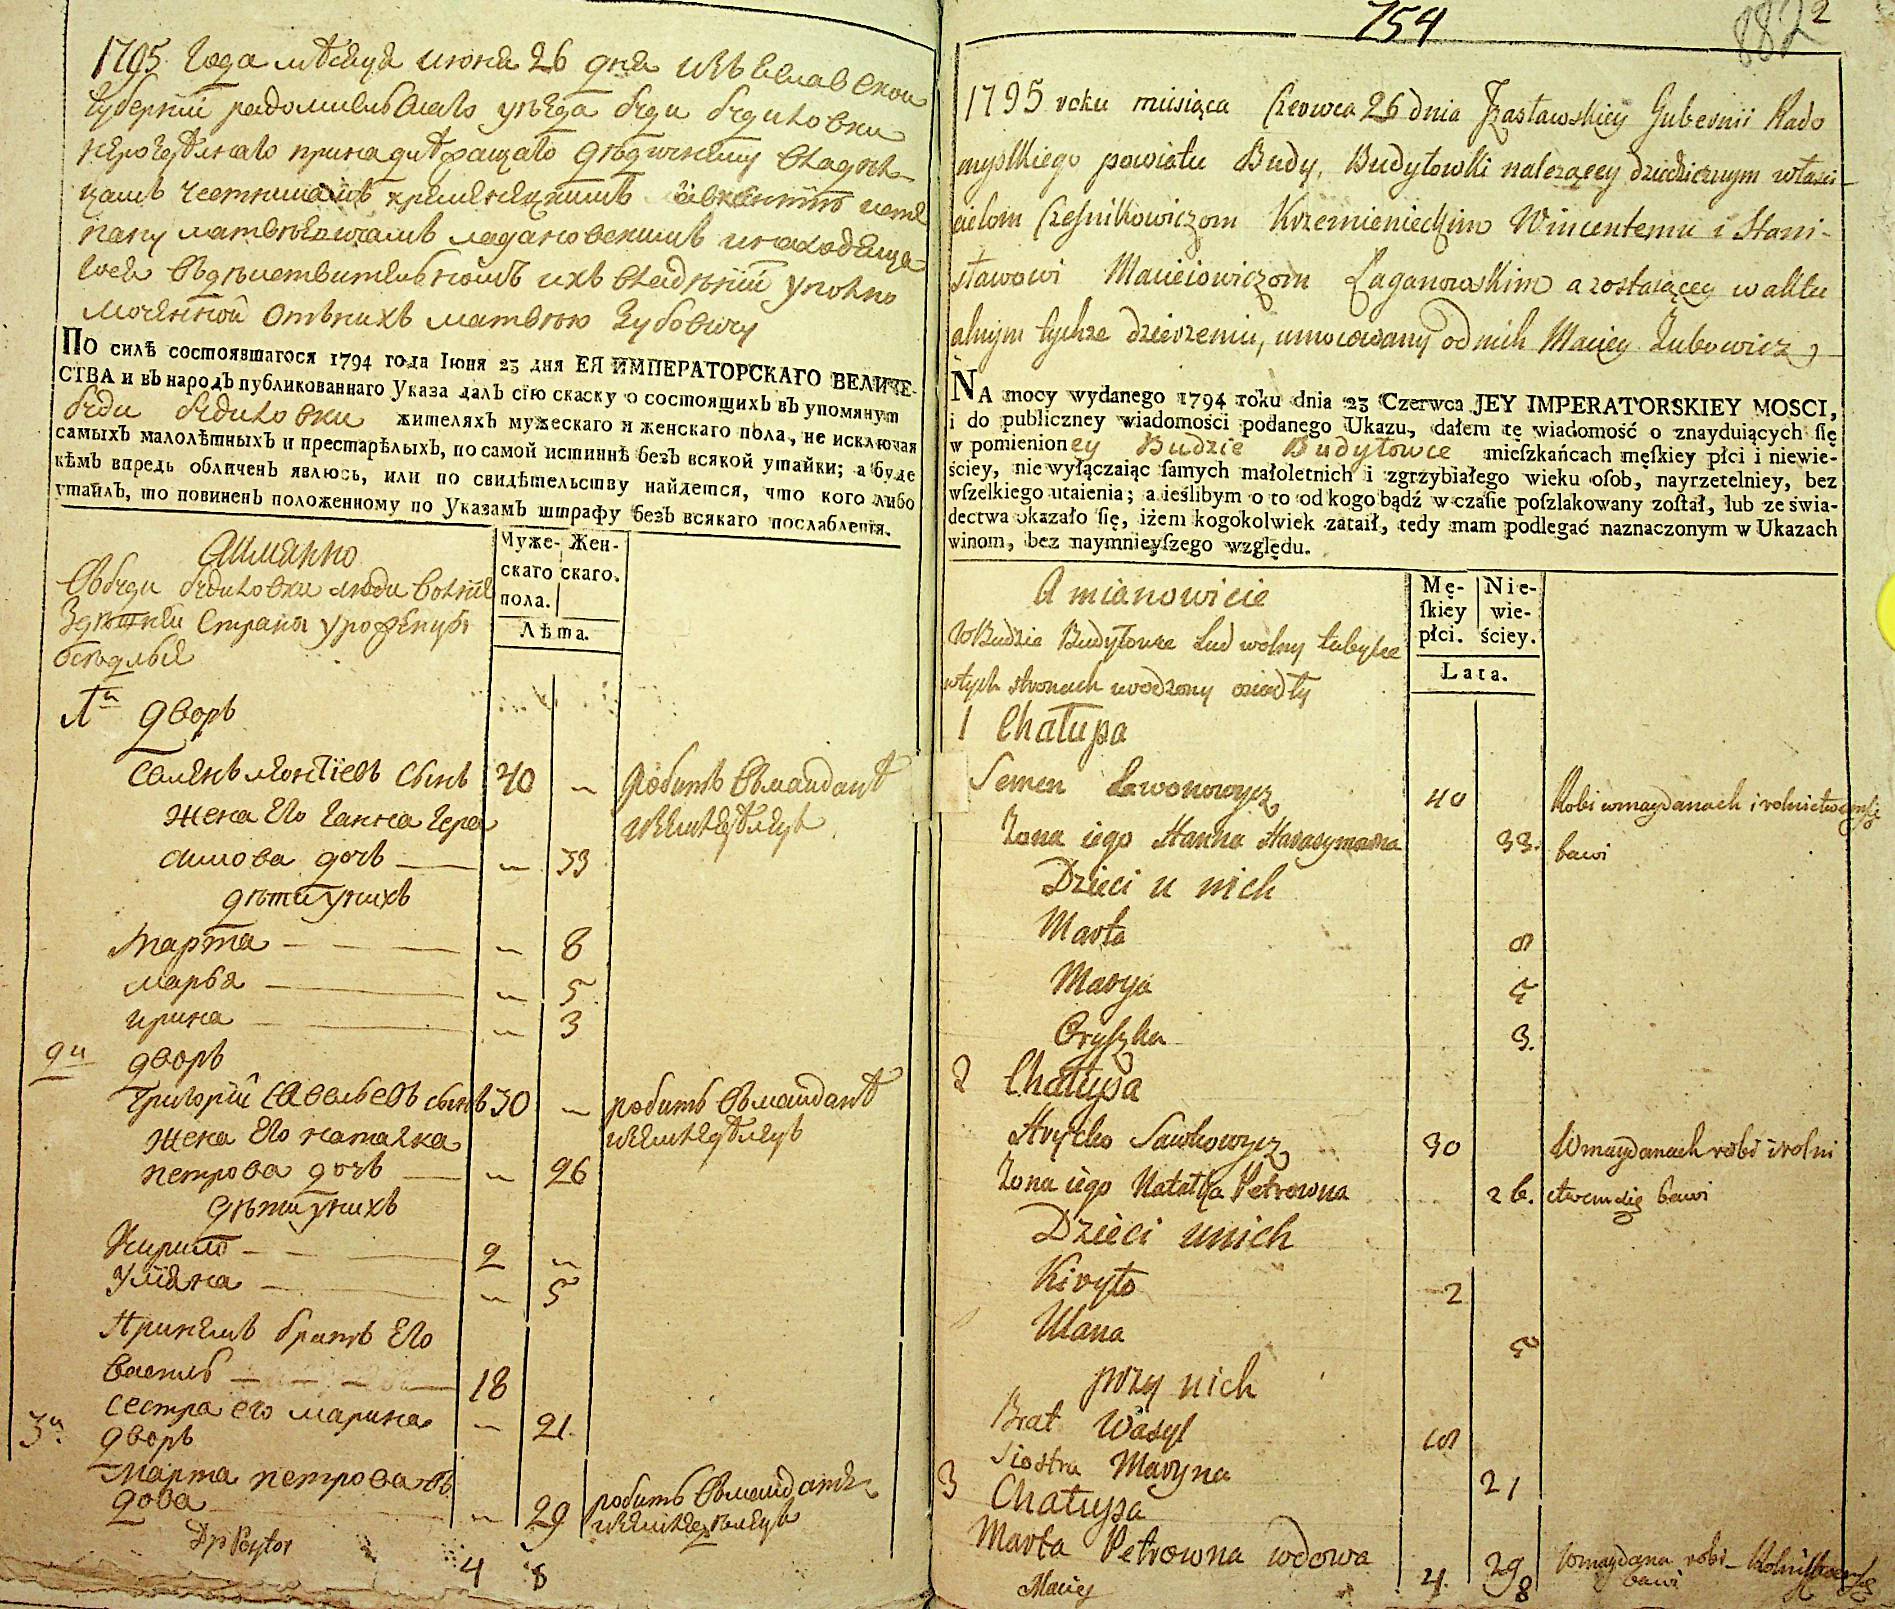 1795 года мѣсяца июня 26 дня изъяславской
губернїи радомисльскаго уезда буди будиловки
принадлѣжащаго
матвѣевичамъ
ихъ владѣнїи уполно
моченной отъ нихъ матвѣю зубовичу
ПО силѣ состоявшагося 1794 года Іюня 23 дня ЕЯ ИМПЕРАТОРСКАГО ВЕЛИЧЕ-
СТВА и въ народъ публикованнаго Указа далъ сїю скаску о состоящихъ въ упомянут
буди будиловки жителяхъ мужескаго и женскаго пола, не исключая
самыхъ малолѣтныхъ и престарѣлыхъ, по самой истиннѣ безъ всякой утайки; а буде
кѣмъ впредь обличенъ явлюсь, или по свидѣтельству найдется, что кого либо
утаилъ, то повиненъ положенному по Указамъ штрафу безъ всякаго послабленія.
Аимянно
Въ буди будиловки люди волнїе
здѣшнеи страны урожденцы
оседлые
Муже- Жен-
скаго скаго.
пола.
Лѣта.
1й дворъ
Семенъ леонтїевъ сынъ 40 робить въ майданѣ
жена его ганна гера
симова дочь 33
дѣти у нихъ
Марта 8
марья 5
ирина 3
2й дворъ
Григорїй савельевъ сынъ 30 робить въ майданѣ
жена его наталка
петрова дочь 26
дѣти у нихъ
Кирило 2
Уляна 5
При немъ братъ его
василь 18
сестра его марина 21
3й дворъ
Марта петрова в
дова 29 робить въ
4 8
754
882 2
1795 roku miesiąca Czerwca 26 dnia Izasławskiey Gubernii Rado
myslkiego powiatu Budy, Budyłowki nalezącey dziedzicznym właści-
cielom Czesnikowiczom Krzemienieckim Wincentemu i Stani-
sławowi Macieiowiczom Łaganowskim a zostaiącey w aktu
alnym tychze dzierzeniu, umocowany od nich Maciey Zubowicz
NA mocy wydanego 1794 roku dnia 23 Czerwca JEY IMPERATORSKIEY MOSCI,
i do publiczney wiadomości podanego Ukazu, dałem tę wiadomość o znayduiących się
w pomienioney Budzie Budyłowce mieſzkańcach męſkiey płci i niewie-
ściey, nie wyłączaiąc ſamych małoletnich i zgrzybiałego wieku oſob, nayrzetelniey, bez
wſzelkiego utaienia; a ieślibym o to od kogo bądź w czaſie poſzlakowany zoſtał, lub ze świa-
dectwa okazało się, iżem kogokolwiek zataił, tedy mam podlegać naznaczonym w Ukazach
winom, bez naymnieyſzego względu.
Amianowicie
W Budzie Budyłowce Lud wolny tubylce
w tych stronach urodzony osiadły
Mę- Nie-
ſkiey wie-
płci. ściey.
Lata.
1 Chałupa
Semen Lewonowycz 40 Robi w maydanach i rolnictwem się
Zona iego Hanna Harasymowna 33. bawi
Dzieci u nich
Marta 8
Marya 5
Oryszka 3.
2 Chałupa
Hryćko Sawkowycz 30 W maydanach robi i rolni
Zona iego Natałka Petrowna 26. ctwem się bawi
Dzieci u nich
Kiryło 2
Ulana 5
przy nich
Brat Wasyl 18
Siostra Maryna 21
3 Chałupa
Marta Petrowna wdowa 29 W maydana robi
bawi
Maciey 4. 8